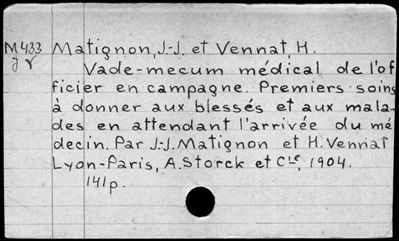 M433 Matignon, J.-J. et Vennat, H.
g v
Vade-mecum médical de l'of
ficier en campagne. Premiers soins
à donner aux blessés et aux mala-
des en attendant l'arrivée du mé
decin. Par J.-J. Matignon et H. Vennat
Lyon-Paris, A. Storck et Cie, 1904.
141p.